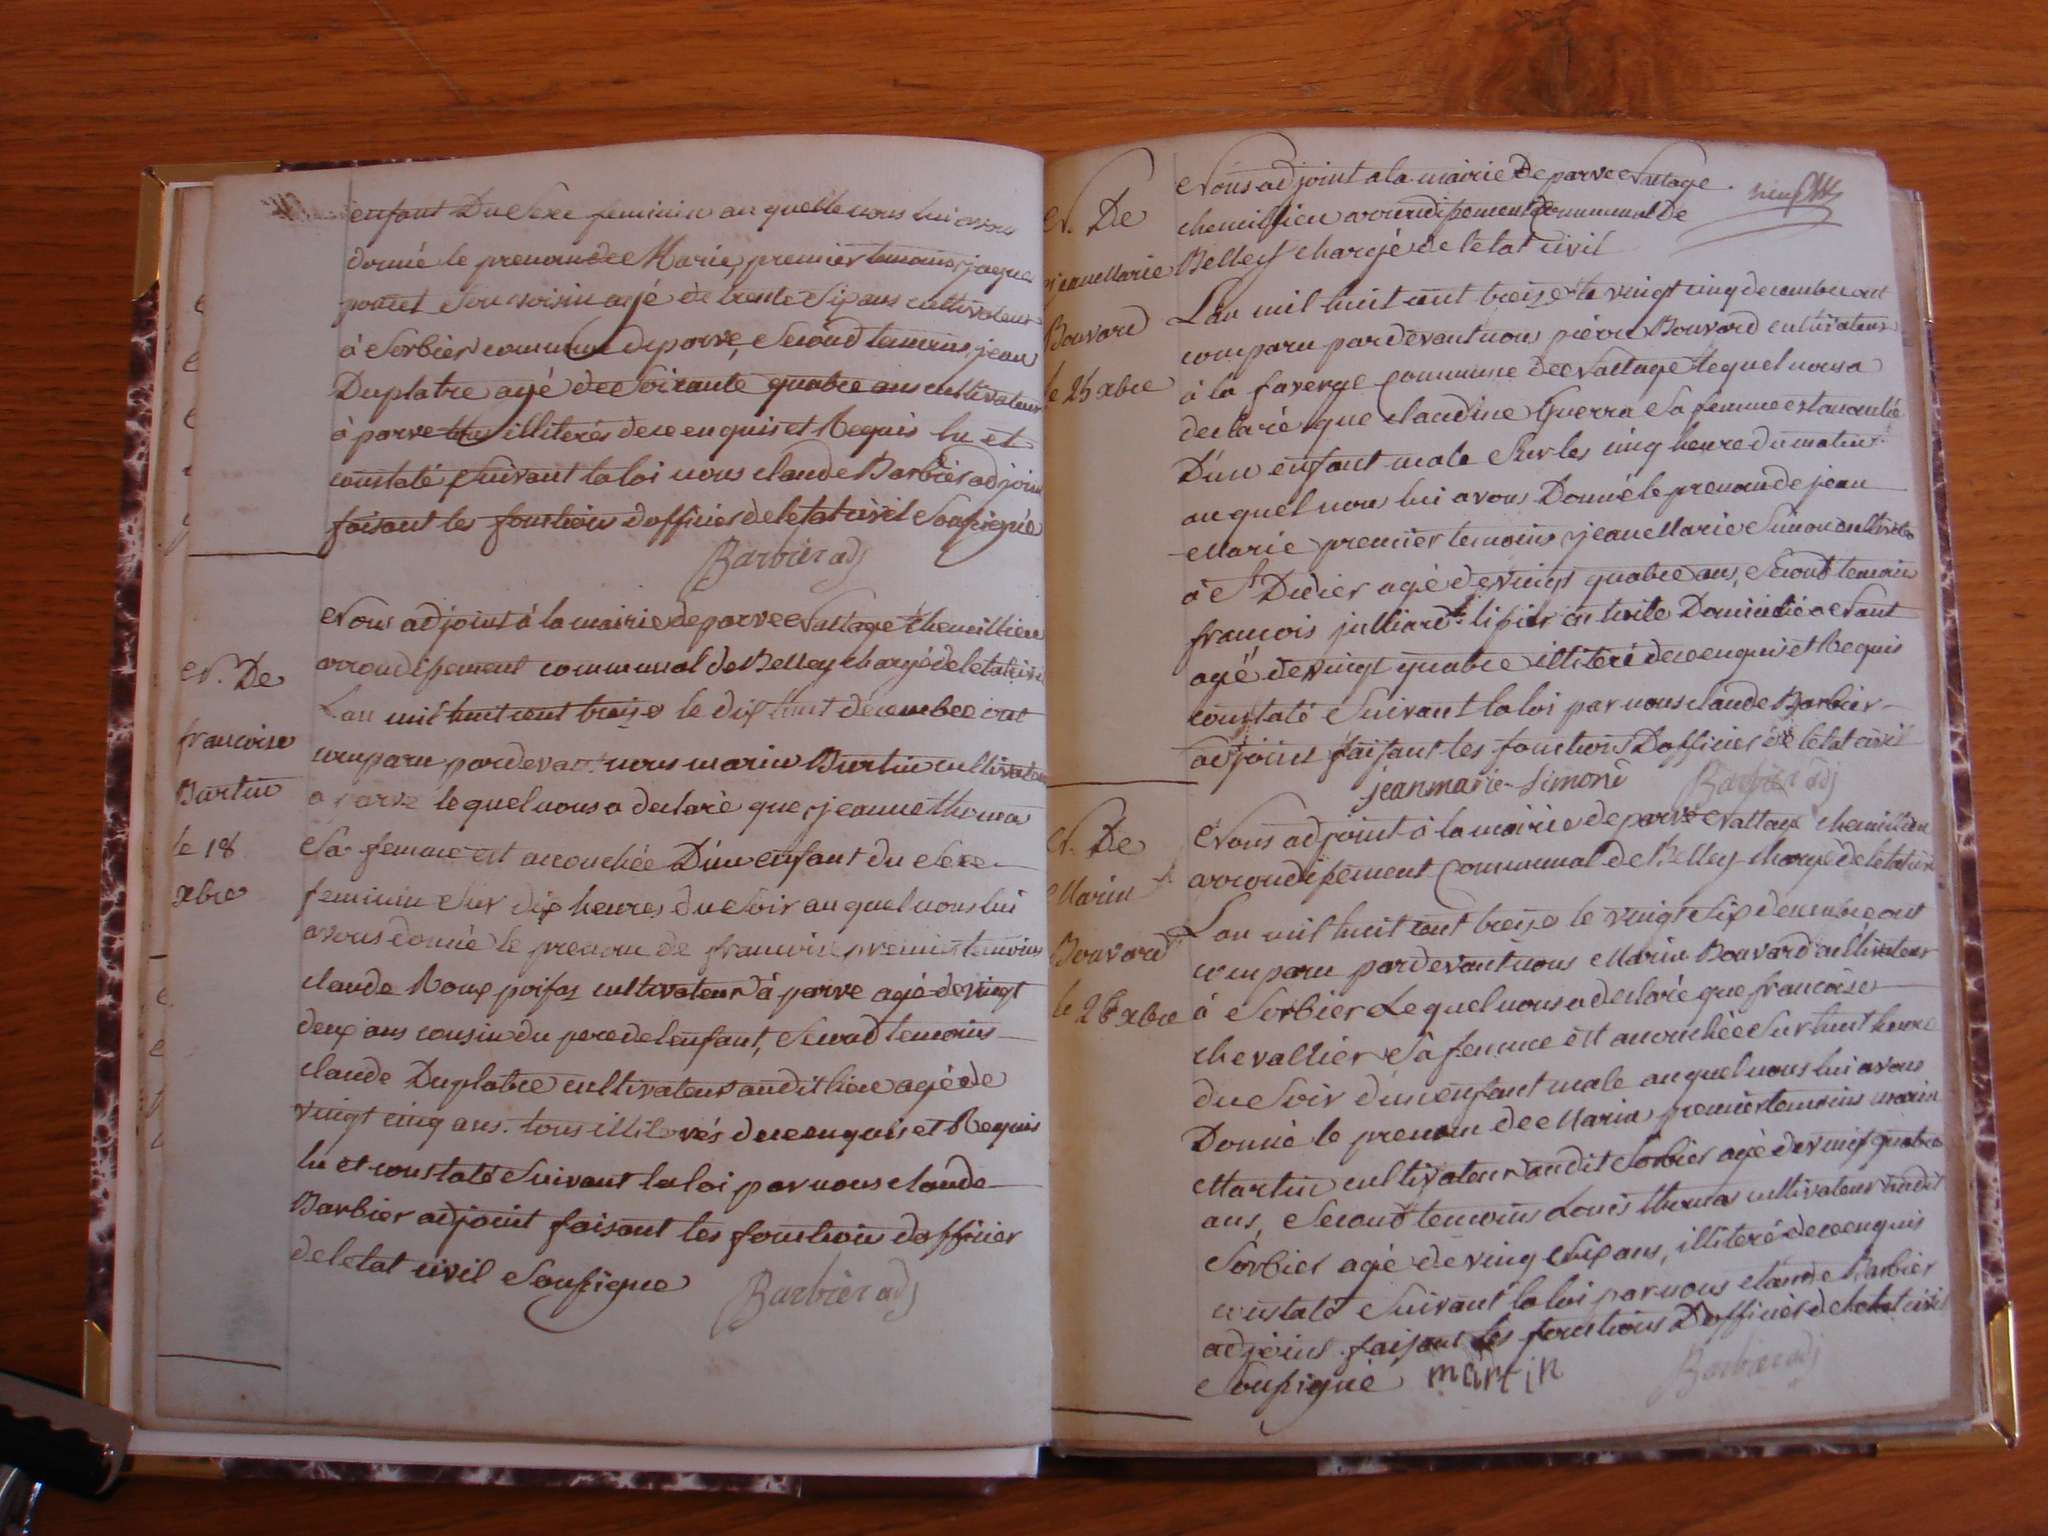 enfant Du Sexe feminin au quelle nous lui avons
donné le prenom de Marie, premier temoins, jaque
poncet Son voisin agé de trente Six ans cultivateur
à Sorbier commune de parve, Second temoins, jean
Duplatre agé de Soixante quatre ans cultivateur
à parve tous illiterés de ce enquis et Requis lu et
constaté Suivant la loi nous claude Barbier adjoint
faisant les fonctions d officier de letat civil Soussigné
Barbier adj
Nous adjoint à la mairie de parve Nattage Chemillieu
arrondissement communal de Belley chargé de letat civil
N. De
Lan mil huit cent treise le dix huit decembre ont
francoise
comparu pardevant nous marin Burtin cultivateur
Burtin
a parve le quel nous a declaré que, jeanne thoma
le 18
Sa femme est accouchée D'un enfant du Sexe
xbre
feminin Sur dix heures du Soir au quel nous lui
avons donné le prenom de francoise premier temoins
claude Roux poisaz cultivateur à parve agé de vingt
deux ans cousin du pere de lenfant, Second temoins
claude Duplatre cultivateur audit lieu agé de
vingt cinq ans. tous illiterés de ce enquis et Requis
lu et constaté Suivant la loi par nous claude
Barbier adjoint faisant les fonctions d officier
de letat civil Soussigne
Barbier adj
Nous adjoint a la mairie De parve Nattage
N. De
chemillieu arrondissement Communal De
jean Marie
Belley chargé de letat civil
Bouvard
Lan mil huit cent treize le vingt cinq decembre ont
comparu pardevant nous pierre Bouvard cultivateur
le 25 xbre
à la faverge Commune de Nattage lequel nous a
declaré que claudine Guerra Sa femme est accouchée
D'un enfant male Sur les cinq heure du matin
au quel nous lui avons Donné le prenom de jean
Marie premier temoins jean Marie Simon cultivate
à St Didier agé de vingt quatre ans, Second temoin
francois julliard domicilié a Nant
agé de vingt quatre illiteré de ce enquis et Requis
constaté Suivant la loi par nous claude Barbier
adjoint faisant les fonctions D officier de letat civil
jeanmarie Simone Barbier adj
N. De
Nous adjoint à la mairie de parve Nattage chemillieu
Marin
arrondissement Communal de Belley chargé de letat civil
Bouvard
Lan mil huit cent treise le vingt Six decembre ont
comparu pardevant nous Marin Bouvard cultivateur
le 26 xbre
à Sorbier Le quel nous a declaré que francoise
chevallier Sa femme est accouchée Sur huit heure
du Soir d'un enfant male au quel nous lui avons
Donné le prenom de Marin, premier temoins marin
Martin cultivateur audit Sorbier agé de vingt quatre
ans, Second temoins Louis thoma cultivateur audit
Sorbier agé de ving Six ans, illiteré de ce enquis
constaté Suivant la loi par nous claude Barbier
adjoint faisant les fonctions D officier de letat civil
Soussigné martin
Barbier adj